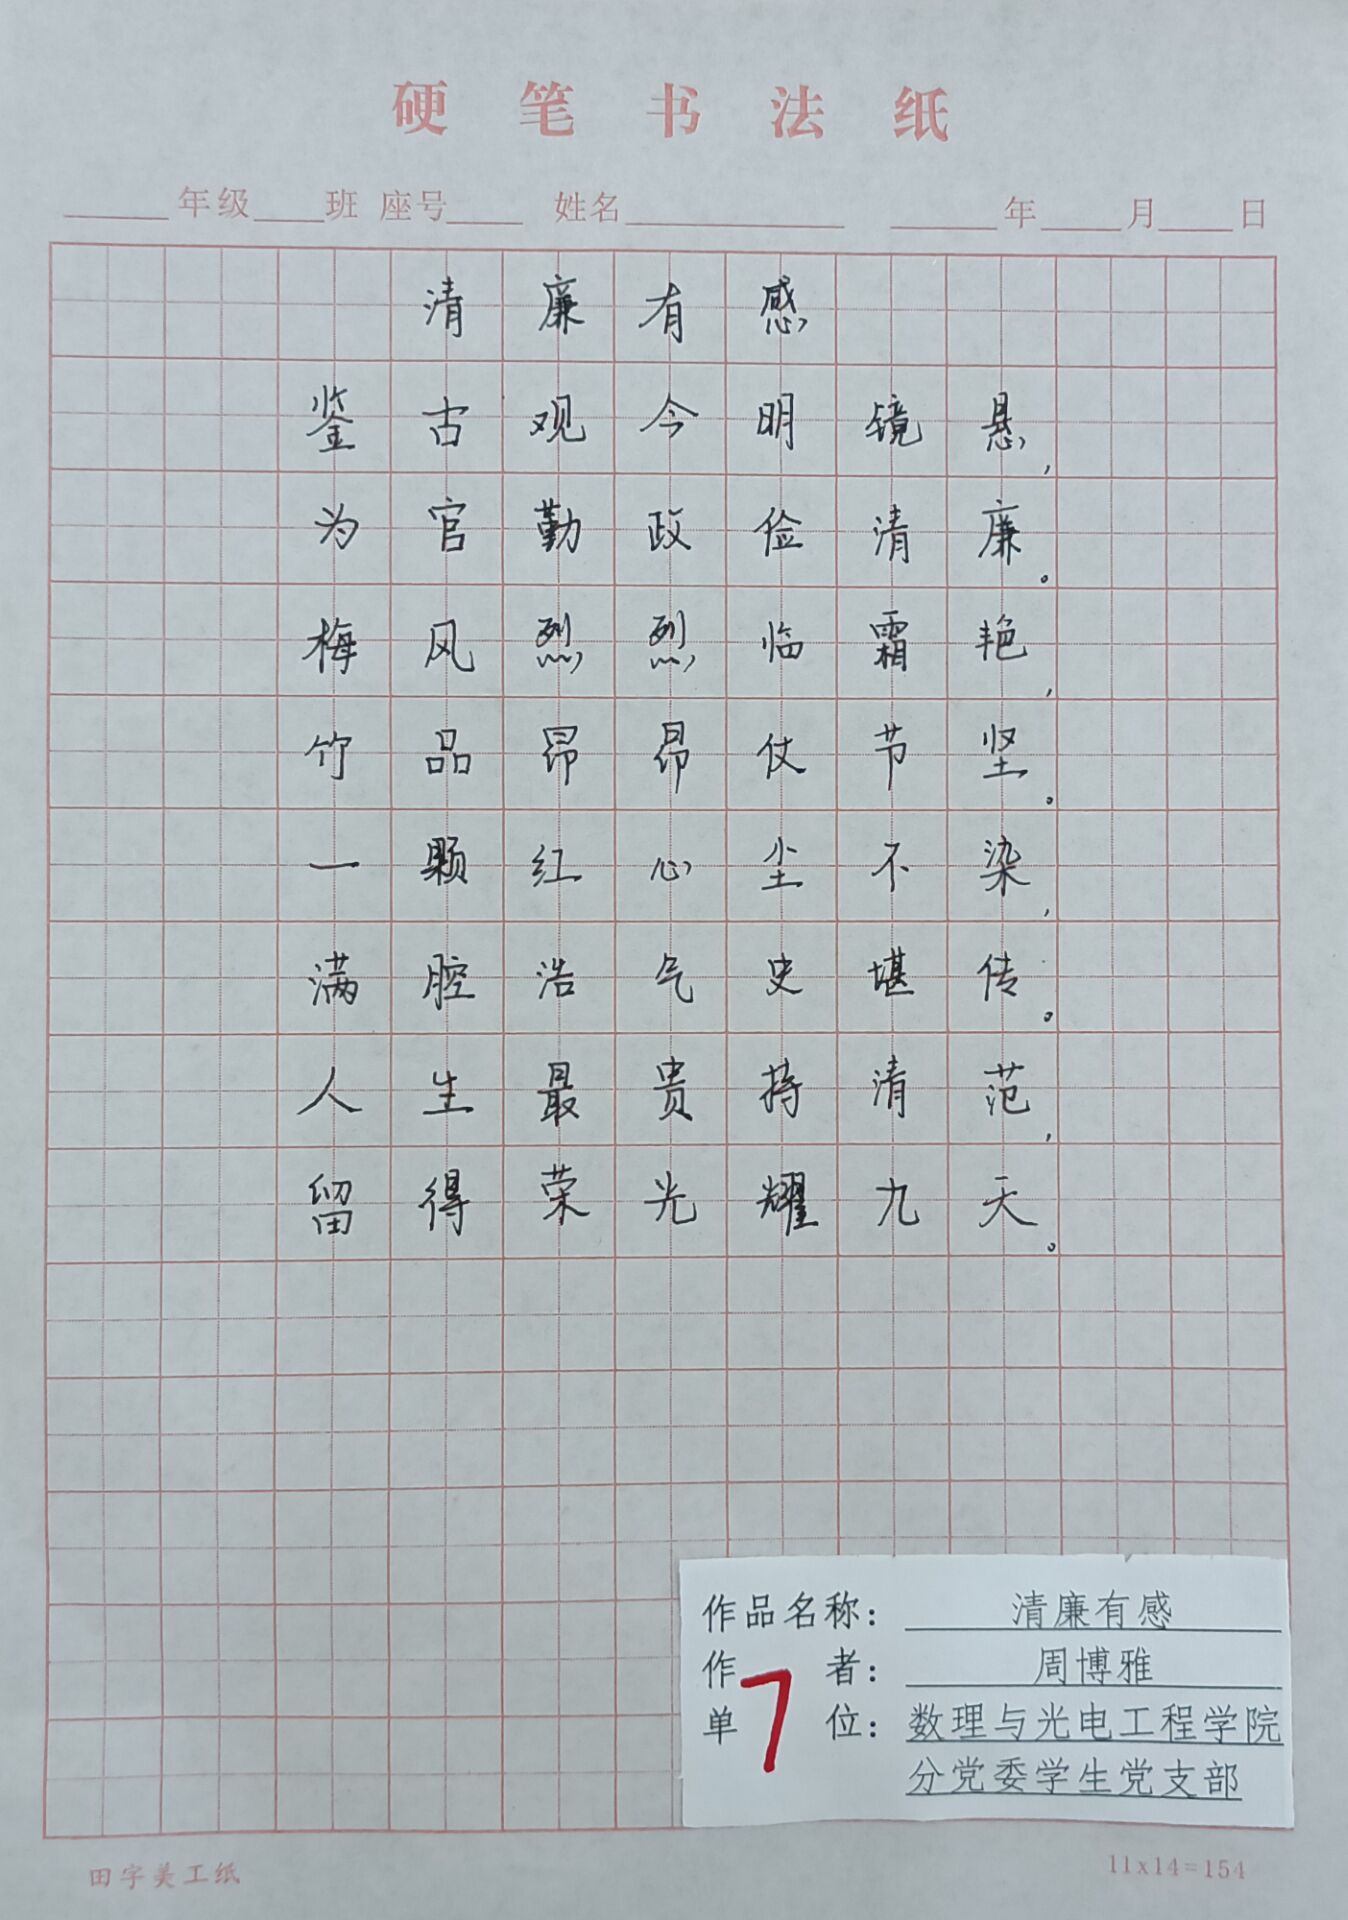 硬笔书法纸
年级 班 座号 姓名 年 月 日
清廉有感
鉴古观今明镜悬,
为官勤政俭清廉。
梅风烈烈临霜艳,
竹品昂昂仗节坚。
一颗红心尘不染,
满腔浩气史堪传。
人生最贵持清范,
留得荣光耀九天。
作品名称: 清廉有感
作者: 周博雅
单位: 数理与光电工程学院
分党委学生党支部
7
田字美工纸 11x14=154